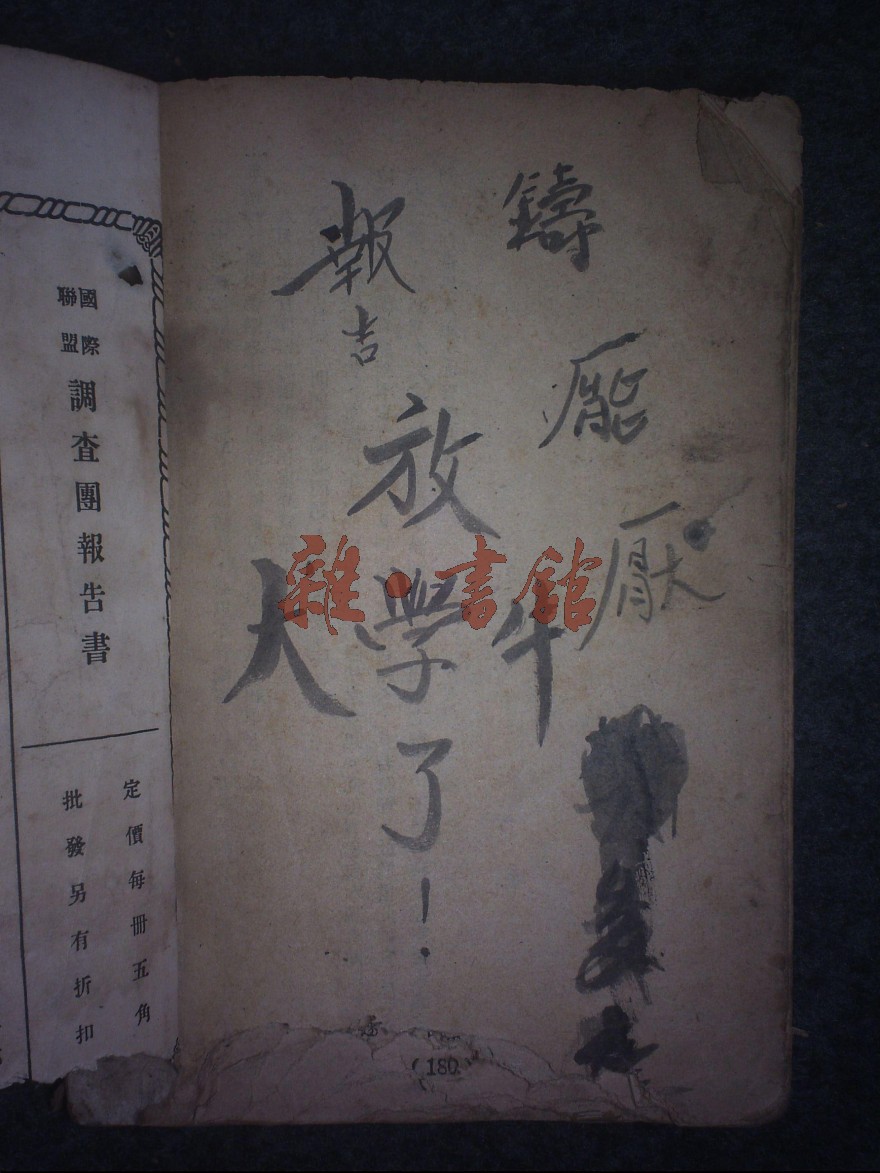 鑄
報告
放學了！
大
牛
雜·書館
國際
聯盟
調查團報告書
定價每冊五角
批發另有折扣
(180)